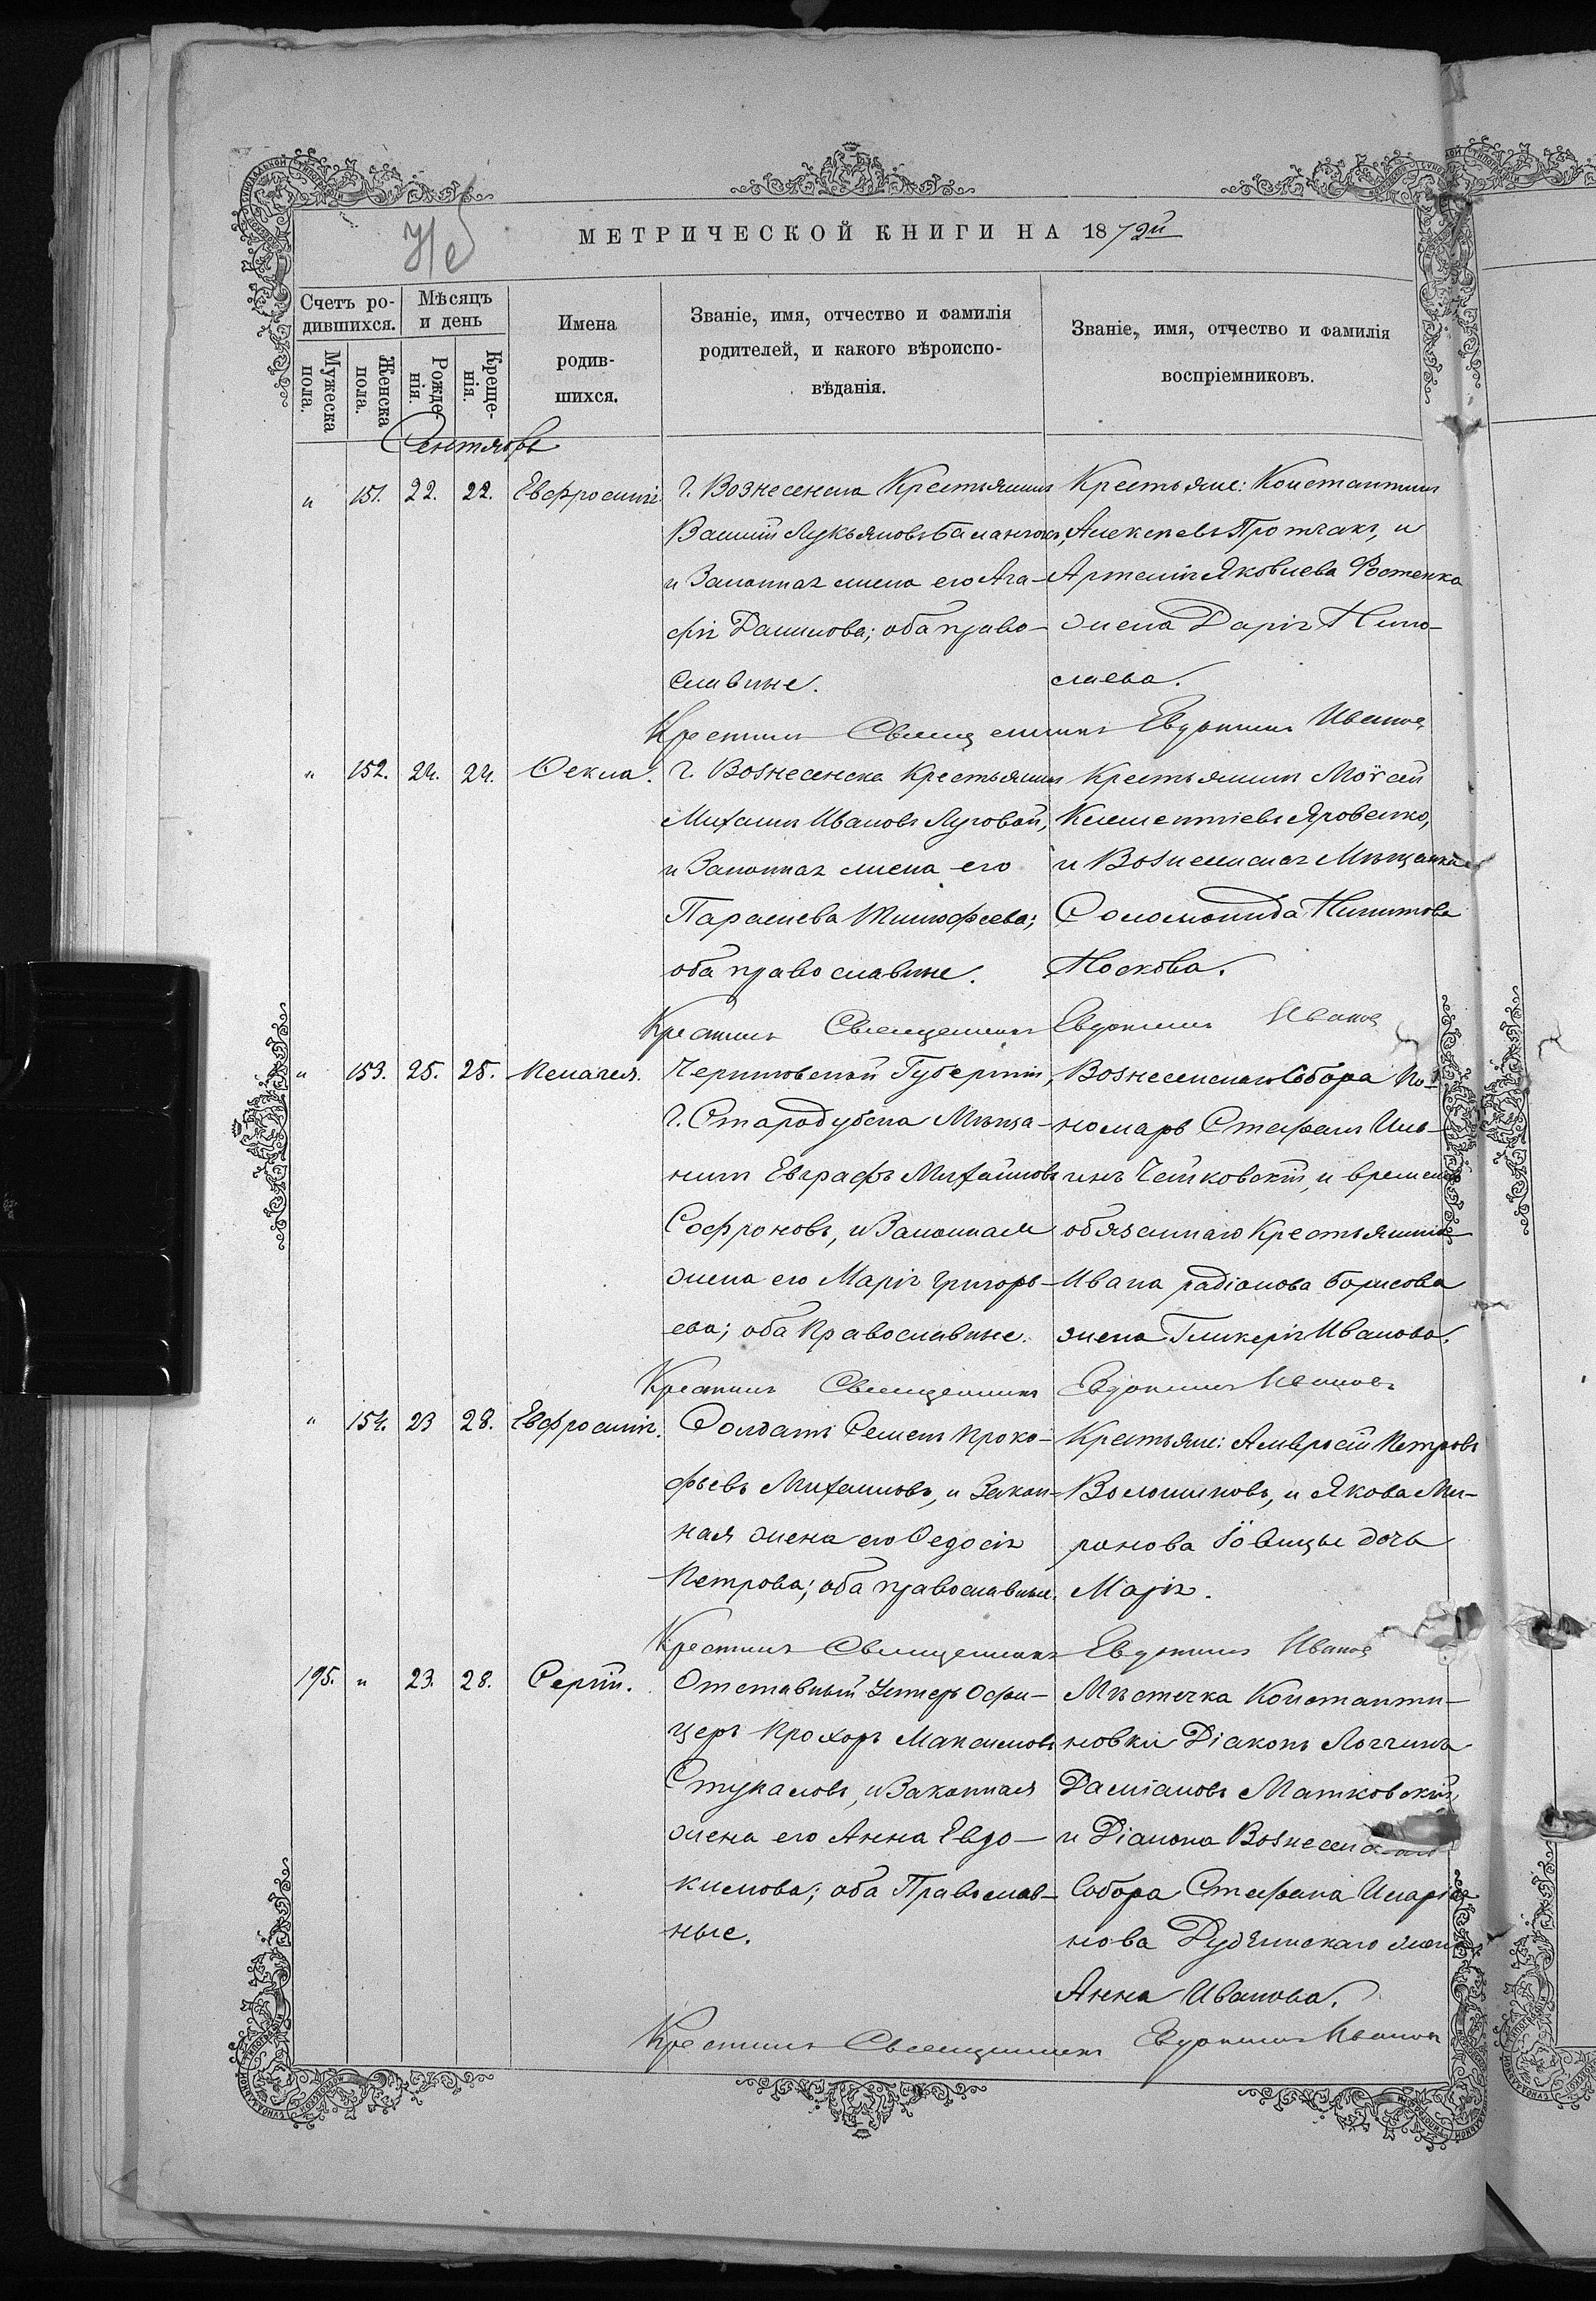 МЕТРИЧЕСКОЙ КНИГИ НА 1872й
Счетъ ро-
дившихся.
Мужеска
пола.
Женска
пола.
Мѣсяцъ
и день
Рожде-
нія.
Креще-
нія.
Имена
родив-
шихся.
Званіе, имя, отчество и фамилія
родителей, и какого вѣроиспо-
вѣданія.
Званіе, имя, отчество и фамилія
воспріемниковъ.
Сентябрь
" 151. 22. 22. Евфросинія
г. Вознесенска Крестьянинъ
Василій Лукьяновъ
и Законная жена его Ага-
фія Данилова; оба право-
славные.
Крестьяне: Константинъ
Алексѣевъ и
Артемія Яковлева
жена Дарія Нико-
лаева.
Крестилъ Священникъ Евдокимъ Ивановъ
" 152. 24. 24. Ѳекла.
г. Вознесенска Крестьянинъ
Михаилъ Ивановъ Луговой,
и Законная жена его
Параскева Тимофеева;
оба православные.
Крестьянинъ Моѵсей
Климентіевъ Яровенко,
и Вознесенская Мѣщанка
Соломонида Никитова
Носкова.
Крестилъ Священникъ Евдокимъ Ивановъ
" 153. 25. 25. Пелагея.
Черниговской Губерніи,
г. Стародубска Мѣща-
нинъ Евграфъ Михайловъ
Софроновъ, и Законная
жена его Марія Григорь-
ева; оба Православные.
Вознесенскаго Собора По-
номарь Стефанъ Иль-
инъ Чайковскій, и временно
обязаннаго Крестьянина
Ивана Радіонова Борисова
жена Гликерія Иванова.
Крестилъ Священникъ Евдокимъ Ивановъ
" 154. 23 28. Евфросинія.
Солдатъ Семенъ Проко-
фьевъ Михайловъ, и Закон-
ная жена его Ѳедосія
Петрова; оба православные.
Крестьяне: Амвросій Петровъ
Волошиновъ, и Якова Ми-
ронова дочь
Марія.
Крестилъ Священникъ Евдокимъ Ивановъ
195. " 23. 28. Сергій.
Отставный Унтеръ Офи-
церъ Прохоръ Максимовъ
Стукаловъ, и Законная
жена его Анна Евдо-
кимова; оба Православ-
ные.
Мѣстечка Константи-
новки Діаконъ Логгинъ
Даміановъ Матковскій,
и Діакона Вознесенскаго
Собора Стефана Иларіо-
нова Дубчинскаго жена
Анна Иванова.
Крестилъ Священникъ Евдокимъ Ивановъ